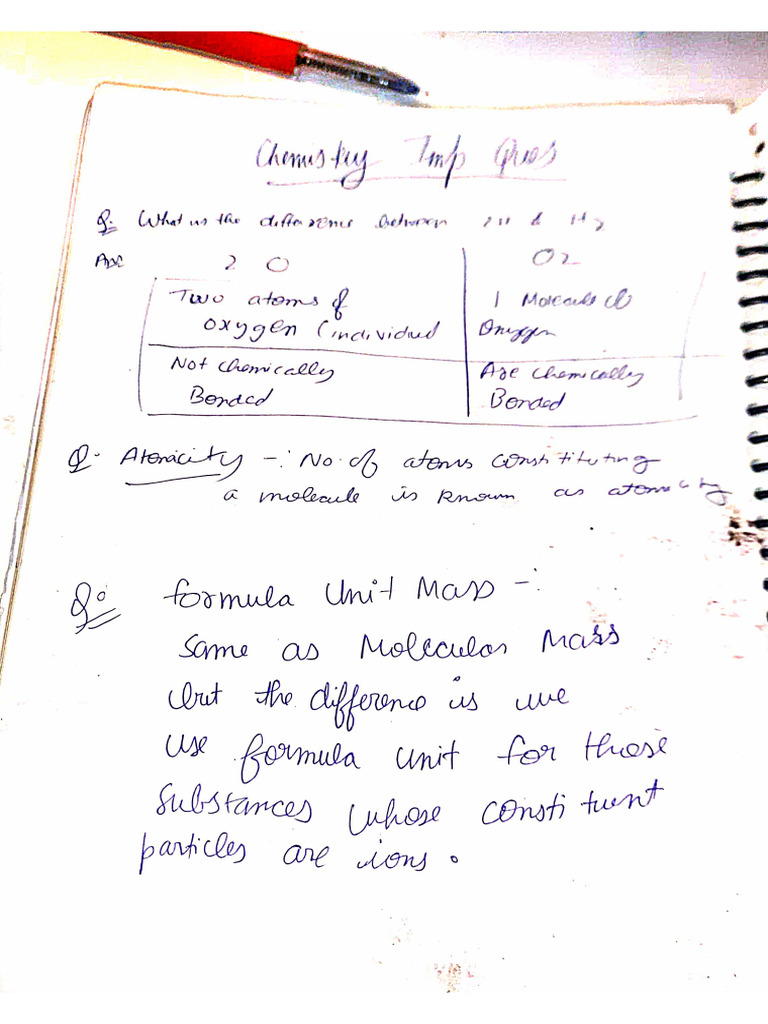 Chemistry Imp Ques
Q: What is the difference between 2H & H2
Ans 2 O O2
Two atoms of 1 Molecule of
oxygen (individual Oxygen
Not Chemically Are Chemically
Bonded Bonded
Q. Atomicity -: No. of atoms constituting
a molecule is known as atomicity
Q: formula Unit Mass -:
same as Molecular Mass
but the difference is we
use formula unit for those
substances whose constituent
particles are ions.